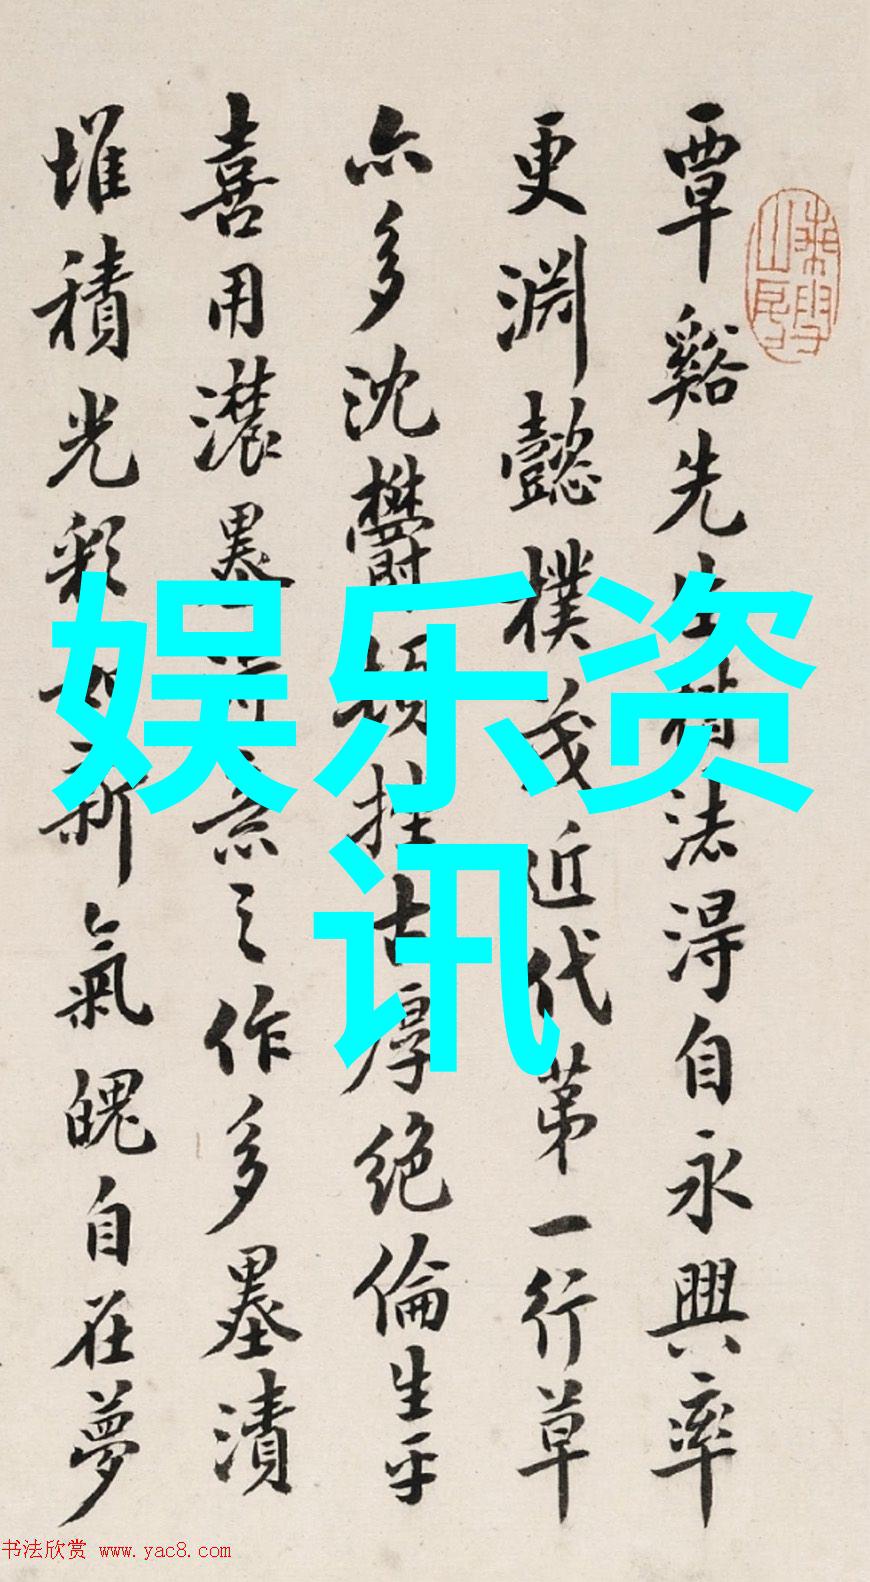 覃谿先生楷法得自永興率
更淵懿樸茂近代第一行草
亦多沈欝頓挫古厚絕倫生平
喜用濃墨得意之作多墨漬
堆積光彩如新氣魄自在夢
娱乐资
讯
书法欣赏 www.yac8.com